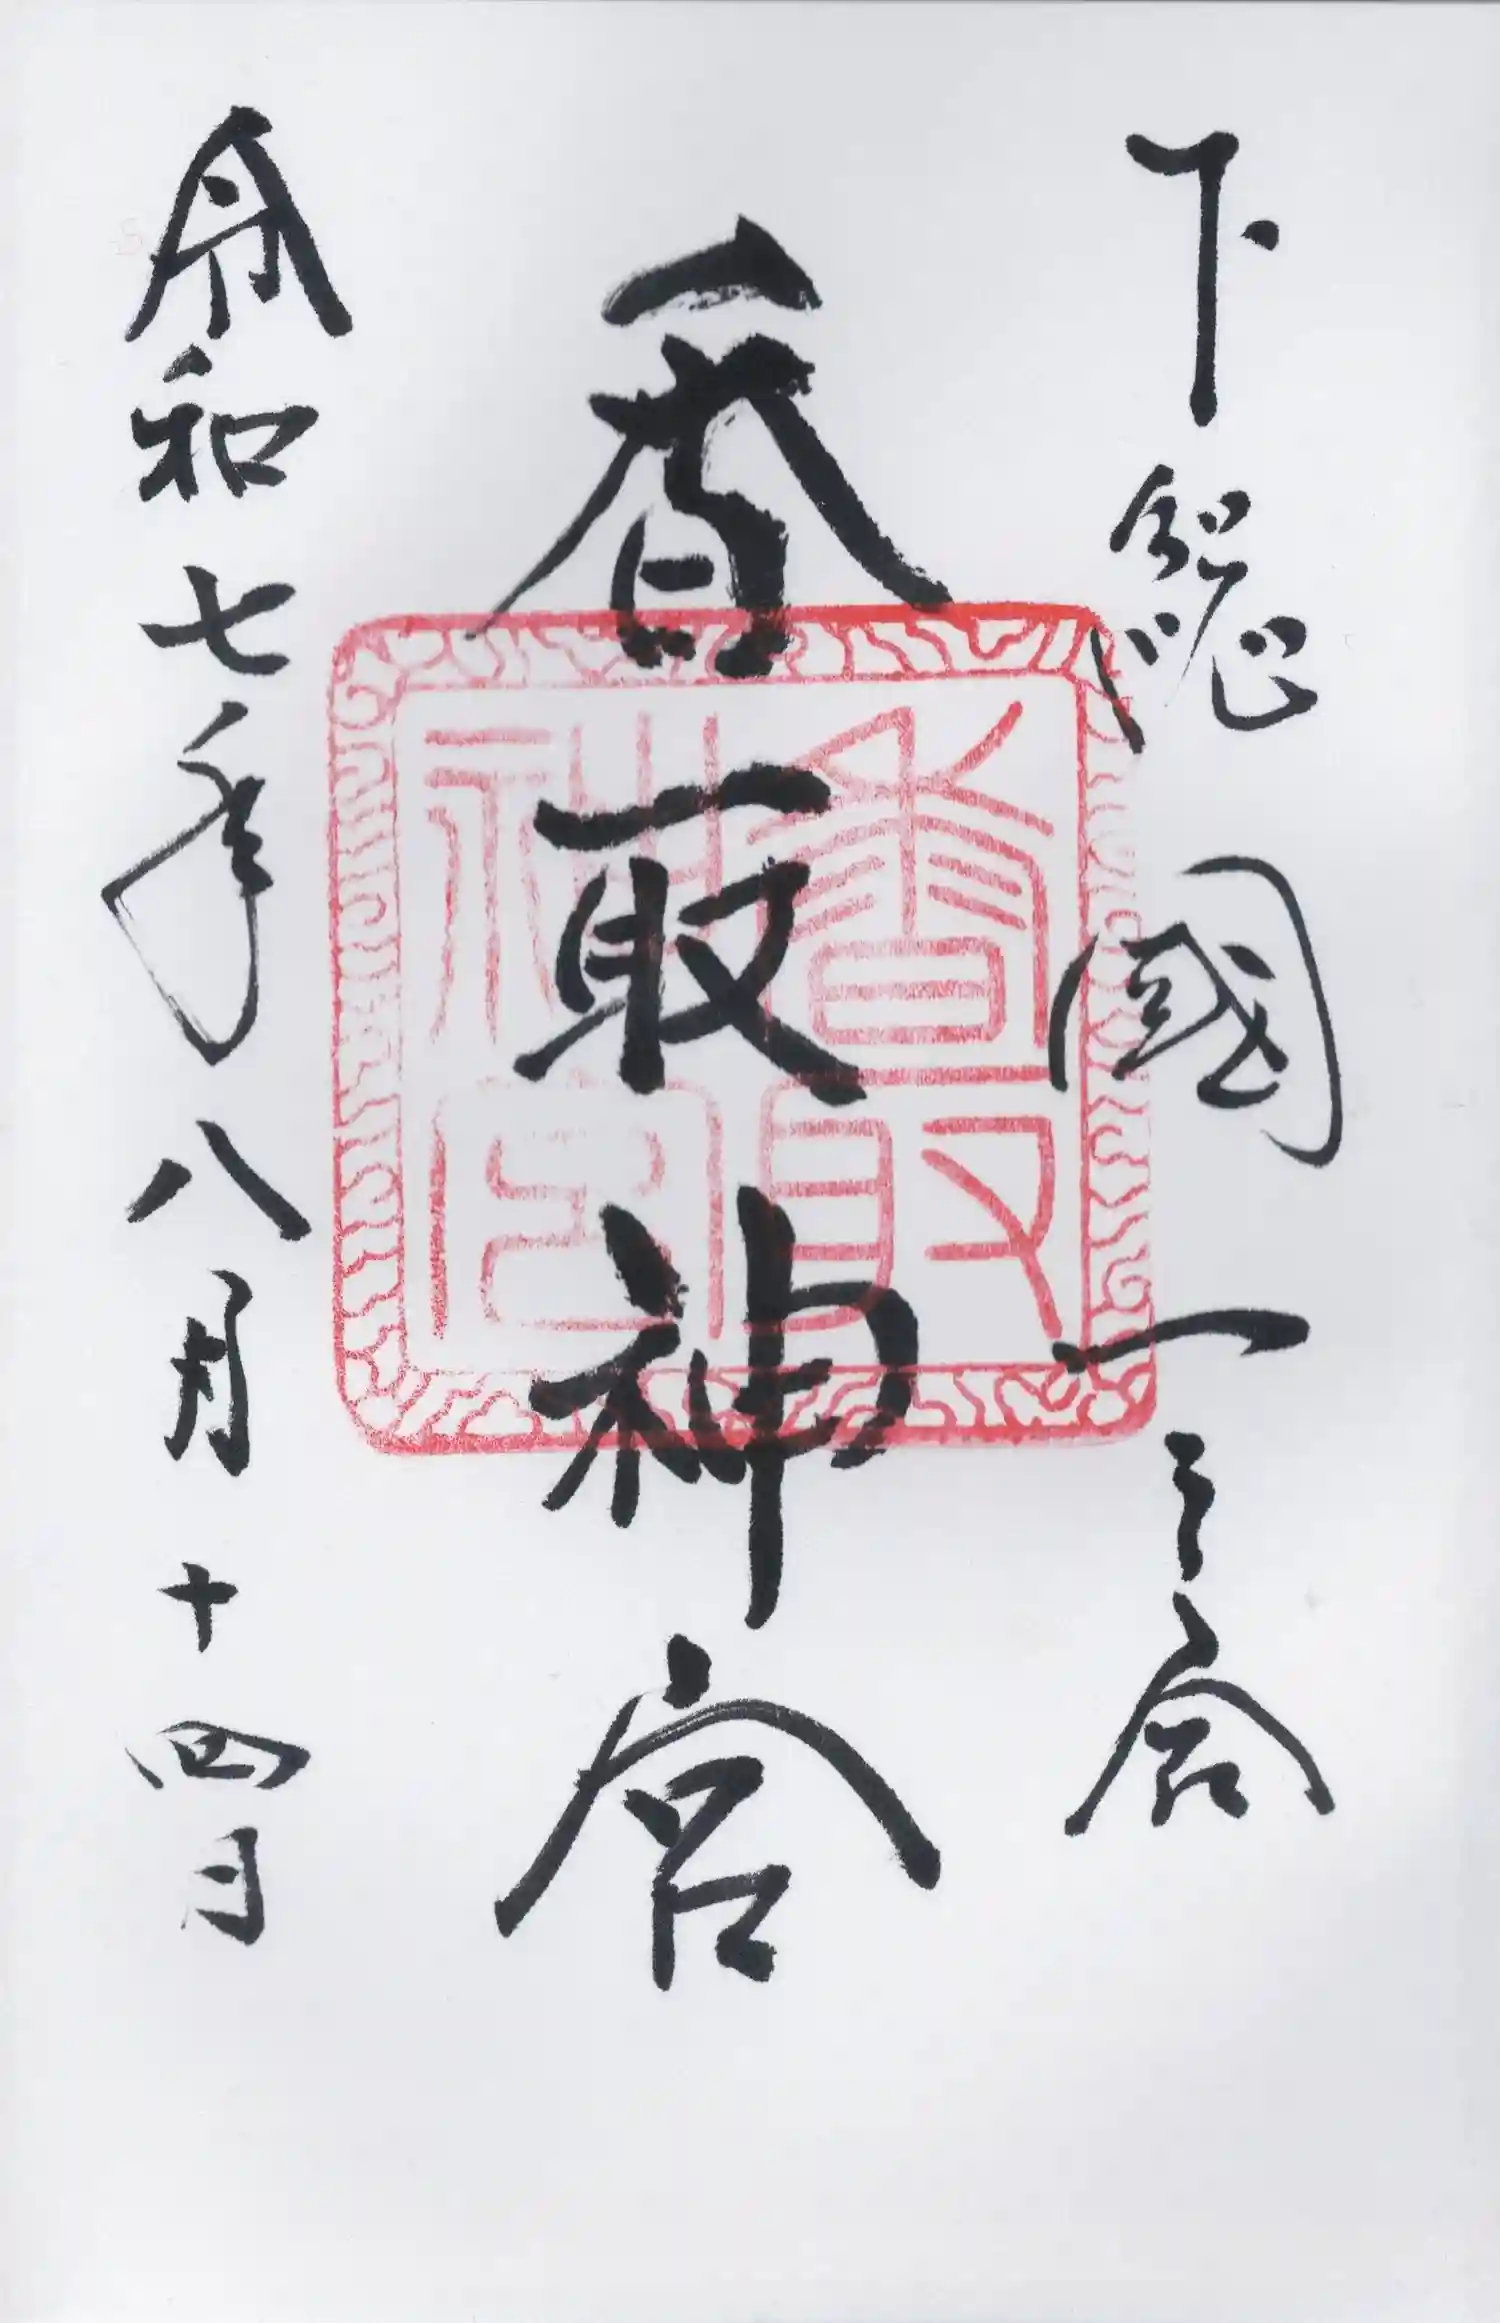 下総國一之宮
香取神宮
令和七年八月十四日
香取
神宮